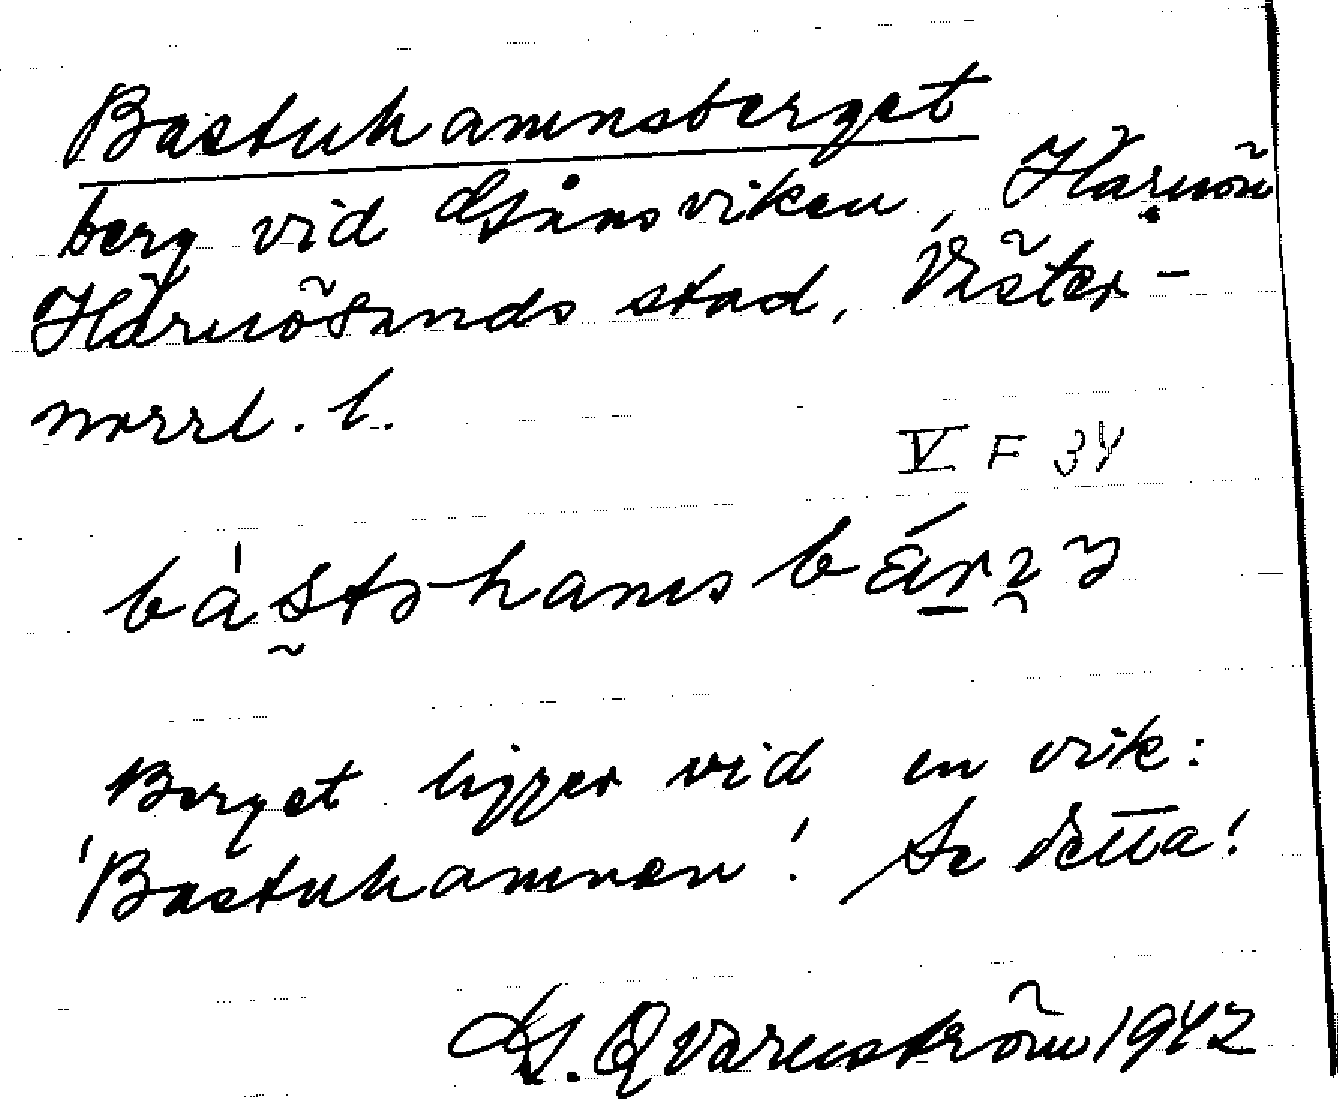 Bastuhamnsberget
berg vid Gånsviken, Härnön
Härnösands stad, Väster-
norrl. l.
V F 34
Berget ligger vid en vik:
Bastuhamnen! Se detta!
G. Qvarnström 1942